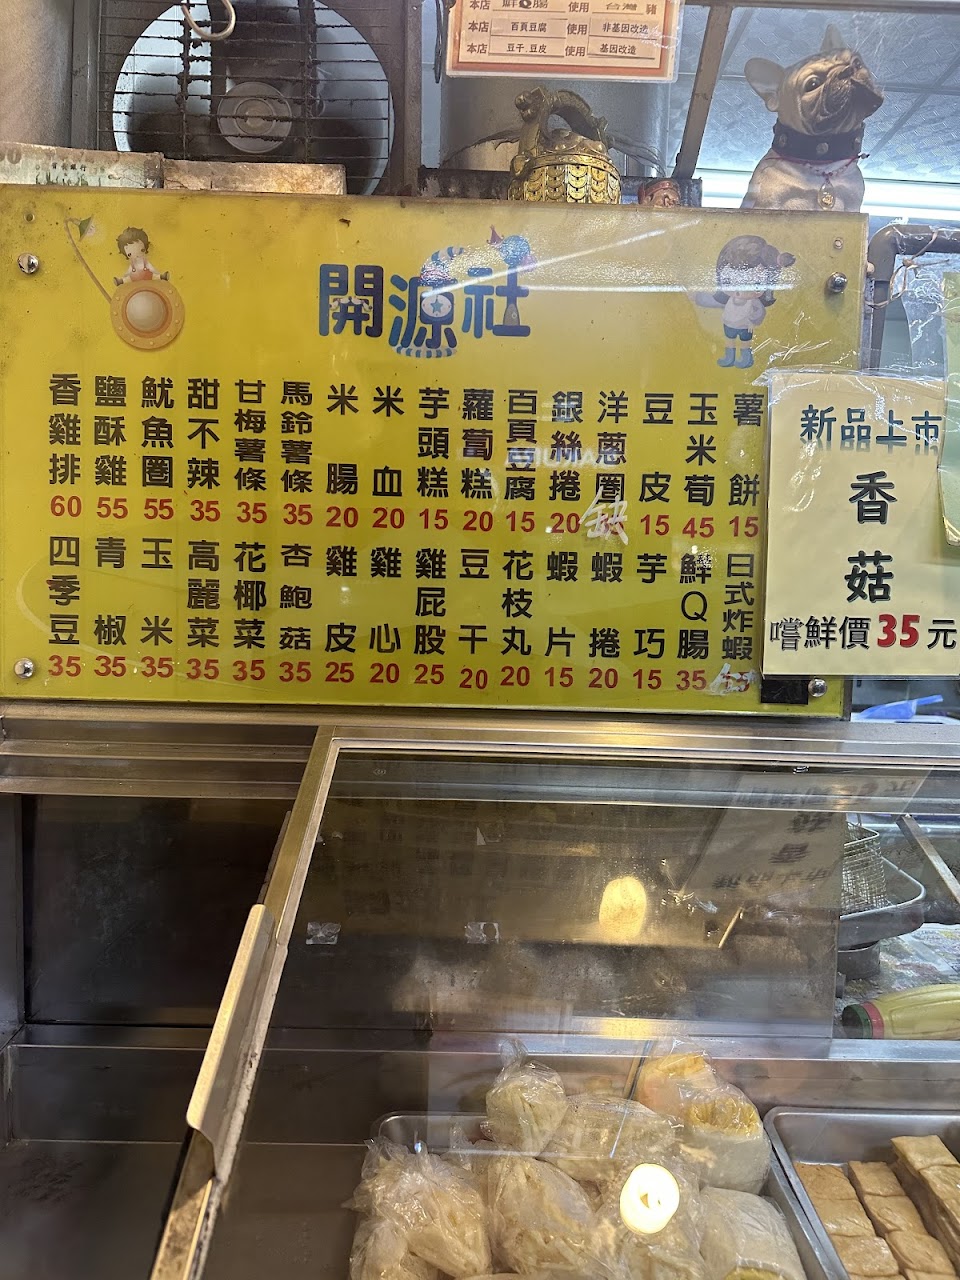 本店 鮮Q腸 使用 台灣豬
本店 百頁豆腐 使用 非基因改造
本店 豆干.豆皮 使用 基因改造
開源社
香雞排 60
鹽酥雞 55
魷魚圈 55
甜不辣 35
甘梅薯條 35
馬鈴薯條 35
米腸 20
米血 20
芋頭糕 15
蘿蔔糕 20
百頁豆腐 15
銀絲捲 20
洋蔥圈 缺
豆皮 15
玉米筍 45
薯餅 15
四季豆 35
青椒 35
玉米 35
高麗菜 35
花椰菜 35
杏鮑菇 35
雞皮 25
雞心 20
雞屁股 25
豆干 20
花枝丸 20
蝦片 15
蝦捲 20
芋巧 15
鮮Q腸 35
日式炸蝦
新品上市
香菇
嚐鮮價35元